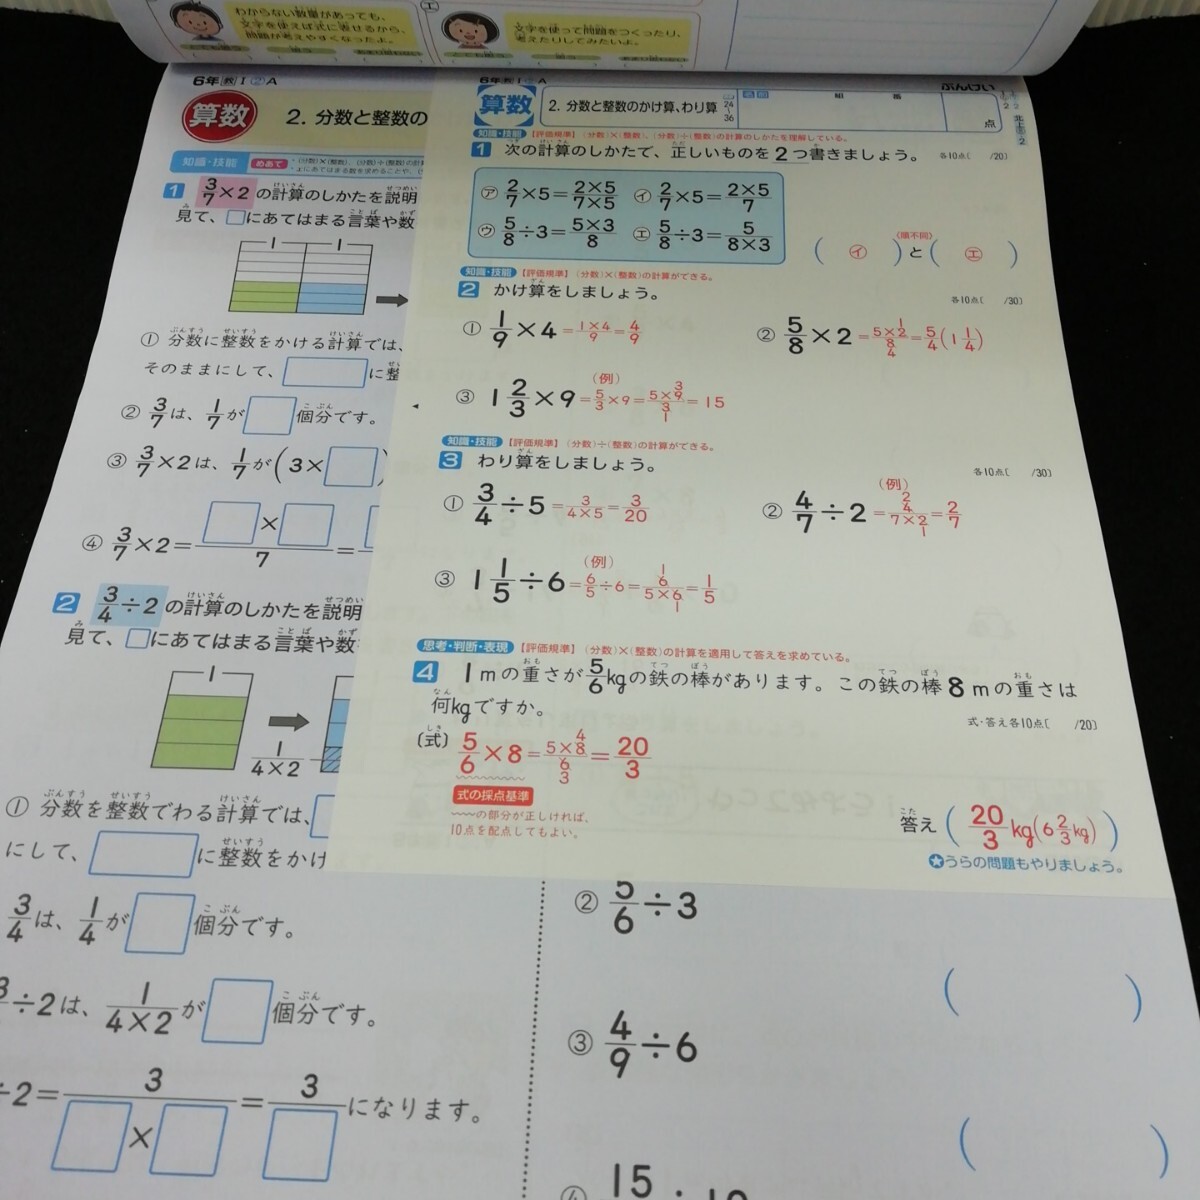 わからない数量があっても、
文字を使えば式に表せるから、
問題が考えやすくなったよ。
エ
文字を使って問題をつくったり、
考えたりしてみたいよ。
6年教Ⅰ②A
算数
2. 分数と整数の
知識・技能 めあて
1 3/7×2の計算のしかたを説明
見て、□にあてはまる言葉や数
1 1
① 分数に整数をかける計算では、
そのままにして、□に整
② 3/7は、1/7が□個分です。
③ 3/7×2は、1/7が(3×□)
④ 3/7×2=□×□/7=
2 3/4÷2の計算のしかたを説明
見て、□にあてはまる言葉や数
1
1/4×2
① 分数を整数でわる計算では、
にして、□に整数をかけ
3/4は、1/4が□個分です。
÷2は、1/4×2が□個分です。
÷2=3/□×□=3/□になります。
6年教Ⅰ②A
ぶんけい
算数
2. 分数と整数のかけ算、わり算
24
36
名前 組 番
点
知識・技能 【評価規準】(分数)×(整数)、(分数)÷(整数)の計算のしかたを理解している。
1 次の計算のしかたで、正しいものを2つ書きましょう。 各10点〔 /20〕
ア 2/7×5=2×5/7×5 イ 2/7×5=2×5/7
ウ 5/8÷3=5×3/8 エ 5/8÷3=5/8×3
(順不同)
( イ )と( エ )
知識・技能 【評価規準】(分数)×(整数)の計算ができる。
2 かけ算をしましょう。 各10点〔 /30〕
① 1/9×4=1×4/9=4/9
② 5/8×2=5×2/8=5/4(1 1/4)
1
4
(例)
③ 1 2/3×9=5/3×9=5×9/3=15
3
1
知識・技能 【評価規準】(分数)÷(整数)の計算ができる。
3 わり算をしましょう。 各10点〔 /30〕
① 3/4÷5=3/4×5=3/20
(例)
② 4/7÷2=4/7×2=2/7
2
1
(例)
③ 1 1/5÷6=6/5÷6=6/5×6=1/5
1
1
思考・判断・表現 【評価規準】(分数)×(整数)の計算を適用して答えを求めている。
4 1mの重さが5/6kgの鉄の棒があります。この鉄の棒8mの重さは
何kgですか。
式・答え各10点〔 /20〕
〔式〕 5/6×8=5×8/6=20/3
4
3
式の採点基準
〜〜の部分が正しければ、
10点を配点してもよい。
答え( 20/3 kg(6 2/3 kg) )
★うらの問題もやりましょう。
② 5/6÷3
( )
③ 4/9÷6
( )